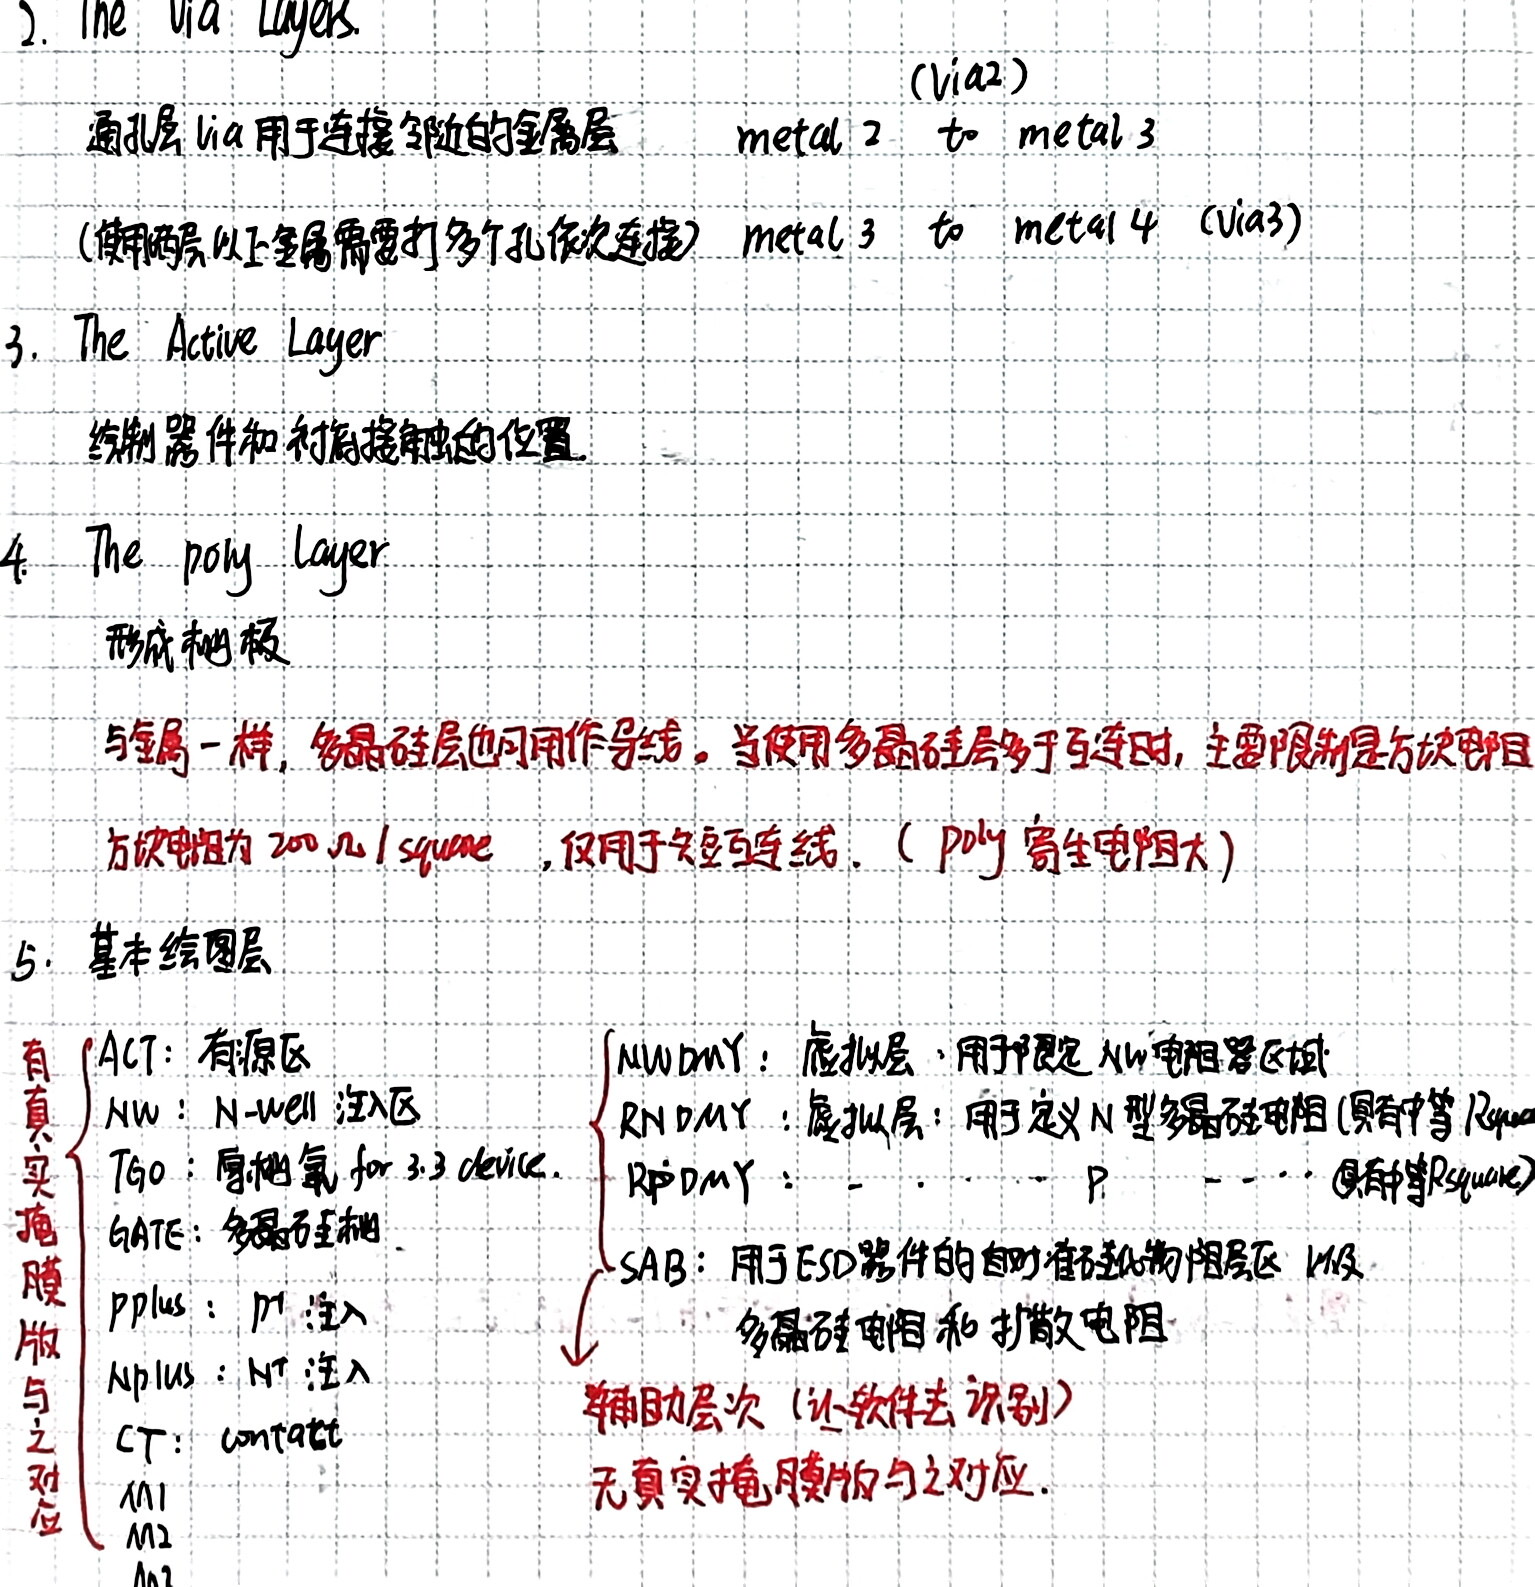 2. The Via Layers.
(Via2)
通孔层 Via 用于连接邻近的金属层 metal 2 to metal 3
(使用两层以上金属需要打多个孔依次连接) metal 3 to metal 4 (Via3)
3. The Active Layer
绘制器件和衬底接触的位置.
4. The poly Layer
形成栅极
与金属一样, 多晶硅层也可用作导线。当使用多晶硅层多于互连时, 主要限制是方块电阻
方块电阻为 200 Ω / square , 仅用于短互连线. ( poly 寄生电阻大 )
5. 基本绘图层
有真实掩膜版与之对应
ACT: 有源区
NW: N-well 注入区
TGO: 厚栅氧 for 3.3 device.
GATE: 多晶硅栅
pplus: p+ 注入
Nplus: N+ 注入
CT: contatt
M1
M2
M3
NWDMY: 虚拟层, 用于限定 NW 电阻器区域
RNDMY: 虚拟层: 用于定义 N 型多晶硅电阻 (具有中等 Rsqua
RPDMY: - · · · · P - - · · · (具有中等Rsquare)
SAB: 用于ESD器件的自对准硅化物阻层区 以及
多晶硅电阻和扩散电阻
辅助层次 (让软件去识别)
无真实掩膜版与之对应.